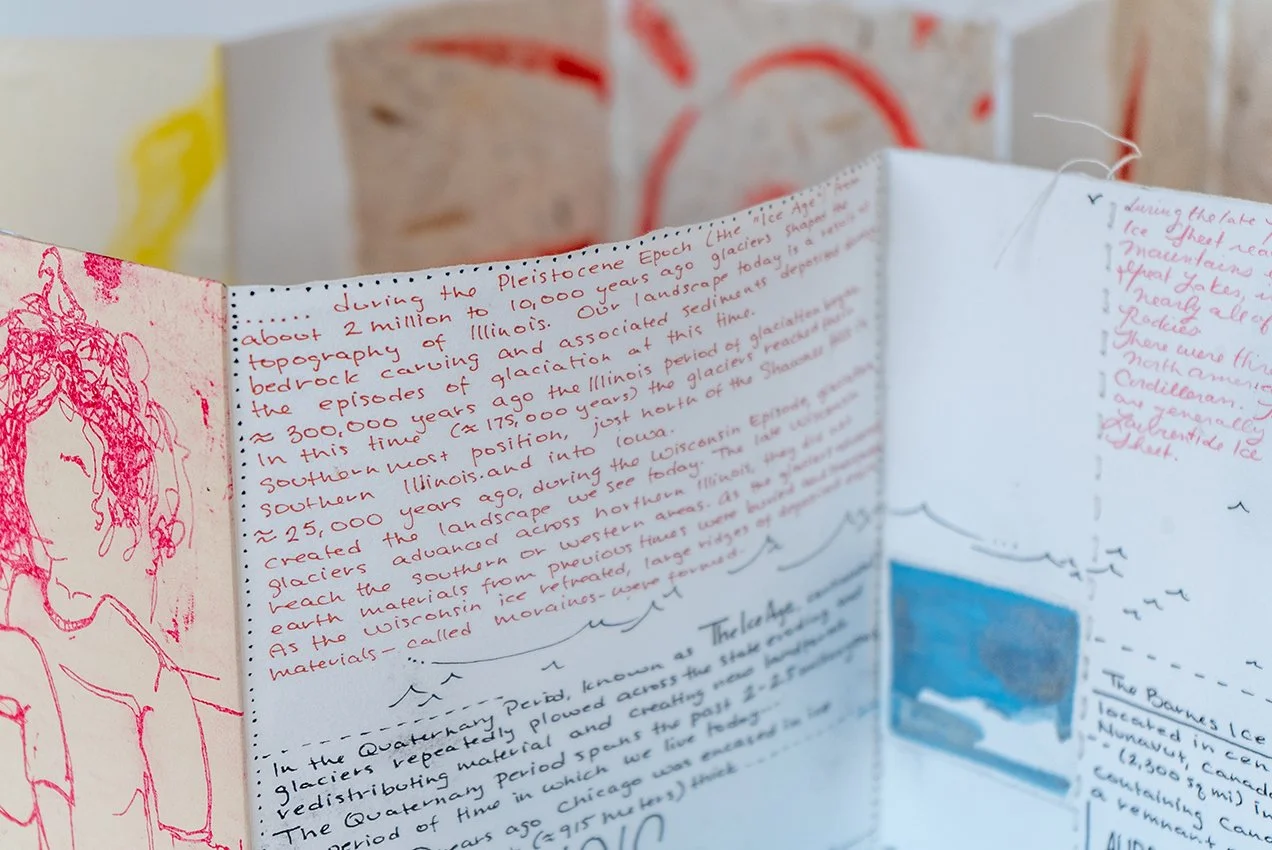 ...... during the Pleistocene Epoch (the "Ice Age" from
about 2 million to 10,000 years ago glaciers shaped the
topography of Illinois. Our landscape today is a result of
bedrock carving and associated sediments deposited during
the episodes of glaciation at this time.
≈ 300,000 years ago the Illinois period of glaciation began
In this time (≈ 175,000 years) the glaciers reached their
southernmost position, just north of the Shawnee Hills in
southern Illinois and into Iowa.
≈ 25,000 years ago, during the Wisconsin Episode,
created the landscape we see today. The late Wisconsin
glaciers advanced across northern Illinois, they did not
reach the southern or western areas. As the glaciers advanced
earth materials from previous times were buried and
As the Wisconsin ice retreated, large ridges of deposited
materials – called moraines – were formed.
In the Quaternary Period, known as The Ice Age,
glaciers repeatedly plowed across the state eroding and
redistributing material and creating new landforms
The Quaternary Period spans the past 2-2.5
period of time in which we live today...
years ago Chicago was encased in ice
(≈ 915 meters) thick ....
During the late
Ice Sheet
mountains
Great Lakes,
nearly all of
Rockies
There were
North America
Cordilleran.
are generally
Laurentide Ice
Sheet.
The Barnes Ice
located in
Nunavut, Canada
(2,300 sq mi) in
containing
a remnant